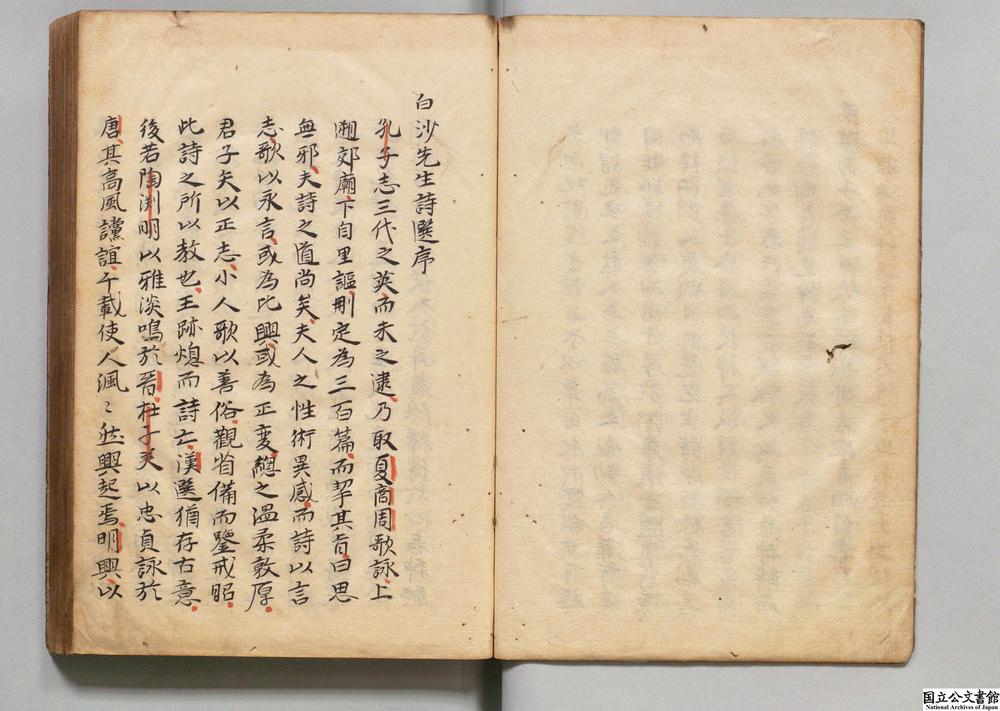 白沙先生詩選序
孔子志三代之英而未之逮乃取夏商周歌詠上
遡郊廟下自里謳刪定為三百篇而挈其旨曰思
無邪夫詩之道尚矣夫人之性術異感而詩以言
志歌以永言或為比興或為正变總之溫柔敦厚
君子矢以正志小人歌以善俗觀省備而鑒戒昭
此詩之所以教也王跡熄而詩亡漢選猶存古意
後若陶渕明以雅淡鳴於晉杜子美以忠貞詠於
唐其高風讜誼千載使人渢〻然興起焉明興以
国立公文書館
National Archives of Japan